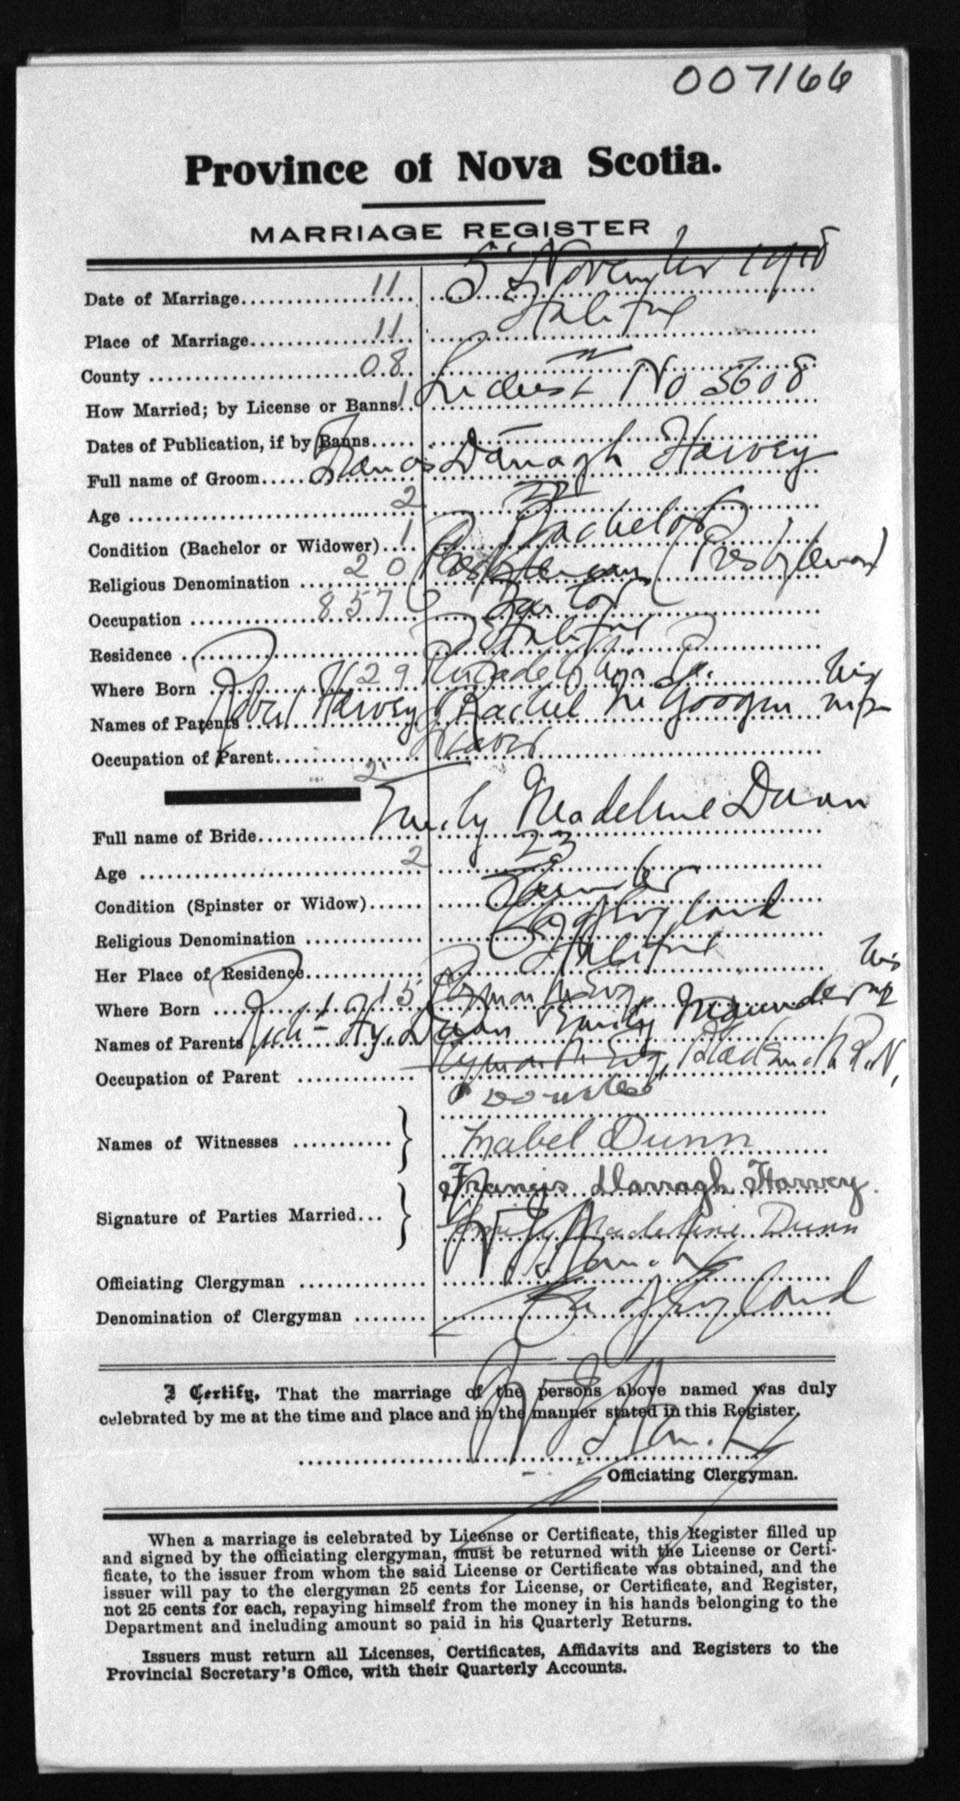 007166
Province of Nova Scotia.
MARRIAGE REGISTER
Date of Marriage 11 5th November 1918
Place of Marriage 11 Halifax
County 08
How Married; by License or Banns 1 License No 3608
Dates of Publication, if by Banns
Full name of Groom Francis Darragh Harvey
Age 2 22
Condition (Bachelor or Widower) 1 Bachelor
Religious Denomination 20 Presbyterian (Presbyterian)
Occupation 857
Residence Halifax
Where Born 29 Philadelphia Pa.
Names of Parents Robert Harvey & Rachel his
Occupation of Parent
2
Full name of Bride Emily Madeline Dunn
Age 2 23
Condition (Spinster or Widow) Spinster
Religious Denomination Ch of England
Her Place of Residence Halifax
Where Born 15 Plymouth Eng
Names of Parents Rich Hy. Dunn Emily Maunder his
Occupation of Parent Plymouth Eng. R.N.
Names of Witnesses
Mabel Dunn
Signature of Parties Married Francis Darragh Harvey
Emily Madeline Dunn
Officiating Clergyman
Denomination of Clergyman Ch of England
I Certify, That the marriage of the persons above named was duly
celebrated by me at the time and place and in the manner stated in this Register.
Officiating Clergyman.
When a marriage is celebrated by License or Certificate, this Register filled up
and signed by the officiating clergyman, must be returned with the License or Certi-
ficate, to the issuer from whom the said License or Certificate was obtained, and the
issuer will pay to the clergyman 25 cents for License, or Certificate, and Register,
not 25 cents for each, repaying himself from the money in his hands belonging to the
Department and including amount so paid in his Quarterly Returns.
Issuers must return all Licenses, Certificates, Affidavits and Registers to the
Provincial Secretary's Office, with their Quarterly Accounts.